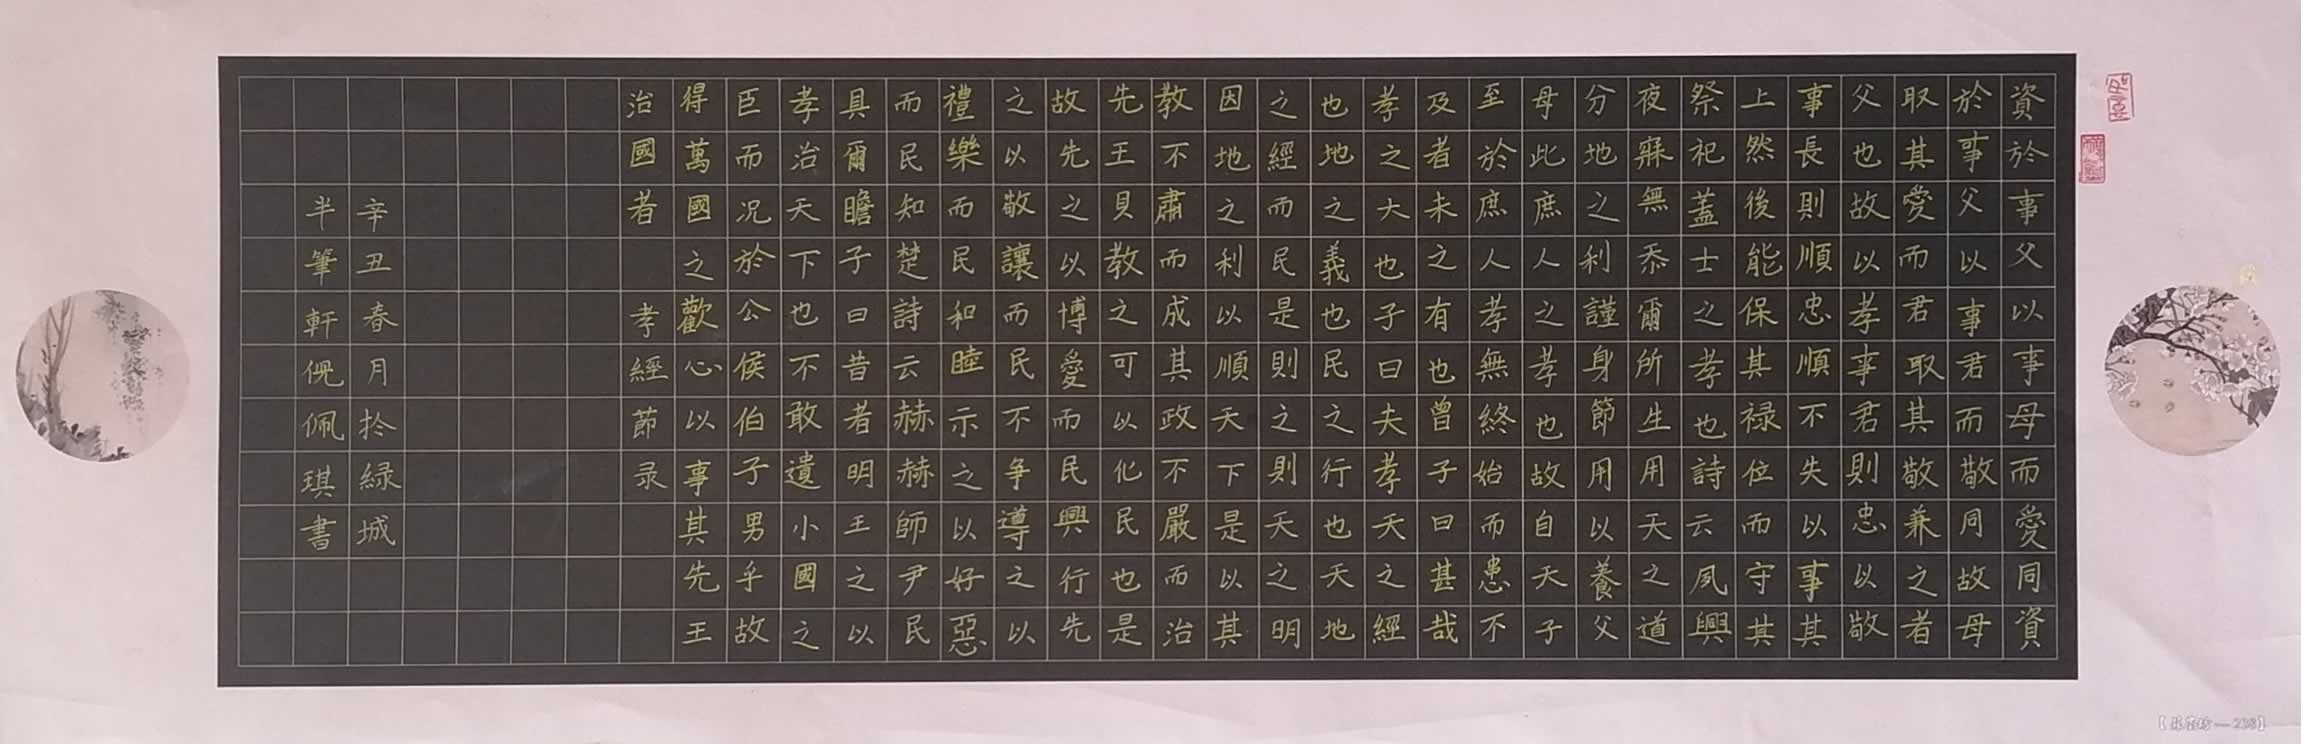 資於事父以事母而愛同資
於事父以事君而敬同故母
取其愛而君取其敬兼之者
父也故以孝事君則忠以敬
事長則順忠順不失以事其
上然後能保其禄位而守其
祭祀蓋士之孝也詩云夙興
夜寐無忝爾所生用天之道
分地之利謹身節用以養父
母此庶人之孝也故自天子
至於庶人孝無終始而患不
及者未之有也曾子曰甚哉
孝之大也子曰夫孝天之經
也地之義也民之行也天地
之經而民是則之則天之明
因地之利以順天下是以其
教不肅而成其政不嚴而治
先王見教之可以化民也是
故先之以博愛而民興行先
之以敬讓而民不爭導之以
禮樂而民和睦示之以好惡
而民知楚詩云赫赫師尹民
具爾瞻子曰昔者明王之以
孝治天下也不敢遺小國之
臣而况於公侯伯子男乎故
得萬國之歡心以事其先王
治國者 孝經節录
辛丑春月扵緑城
半筆軒倪佩琪書